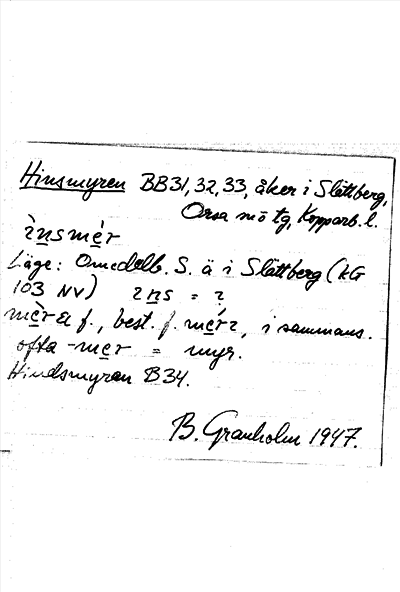 Hinsmyren BB31, 32, 33, åker i Slättberg,
Orsa sn o tg, Kopparb. l.
ìnsmèr
Läge: Omedelb. S. ä i Slättberg (kG
103 NV) ins = ?
mèr f., best. f. , i sammans.
ofta -mer = myr.
Hindsmyren B34.
B. Granholm 1947.